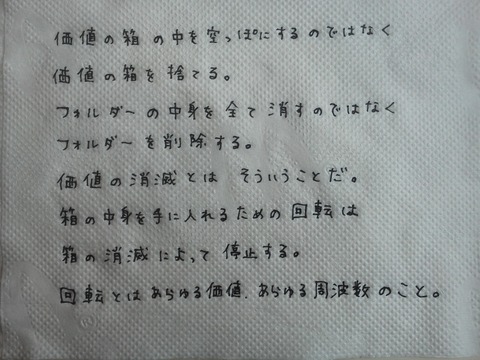 価値の箱の中を空っぽにするのではなく
価値の箱を捨てる。
フォルダーの中身を全て消すのではなく
フォルダーを削除する。
価値の消滅とは そういうことだ。
箱の中身を手に入れるための回転は
箱の消滅によって停止する。
回転とはあらゆる価値、あらゆる周波数のこと。